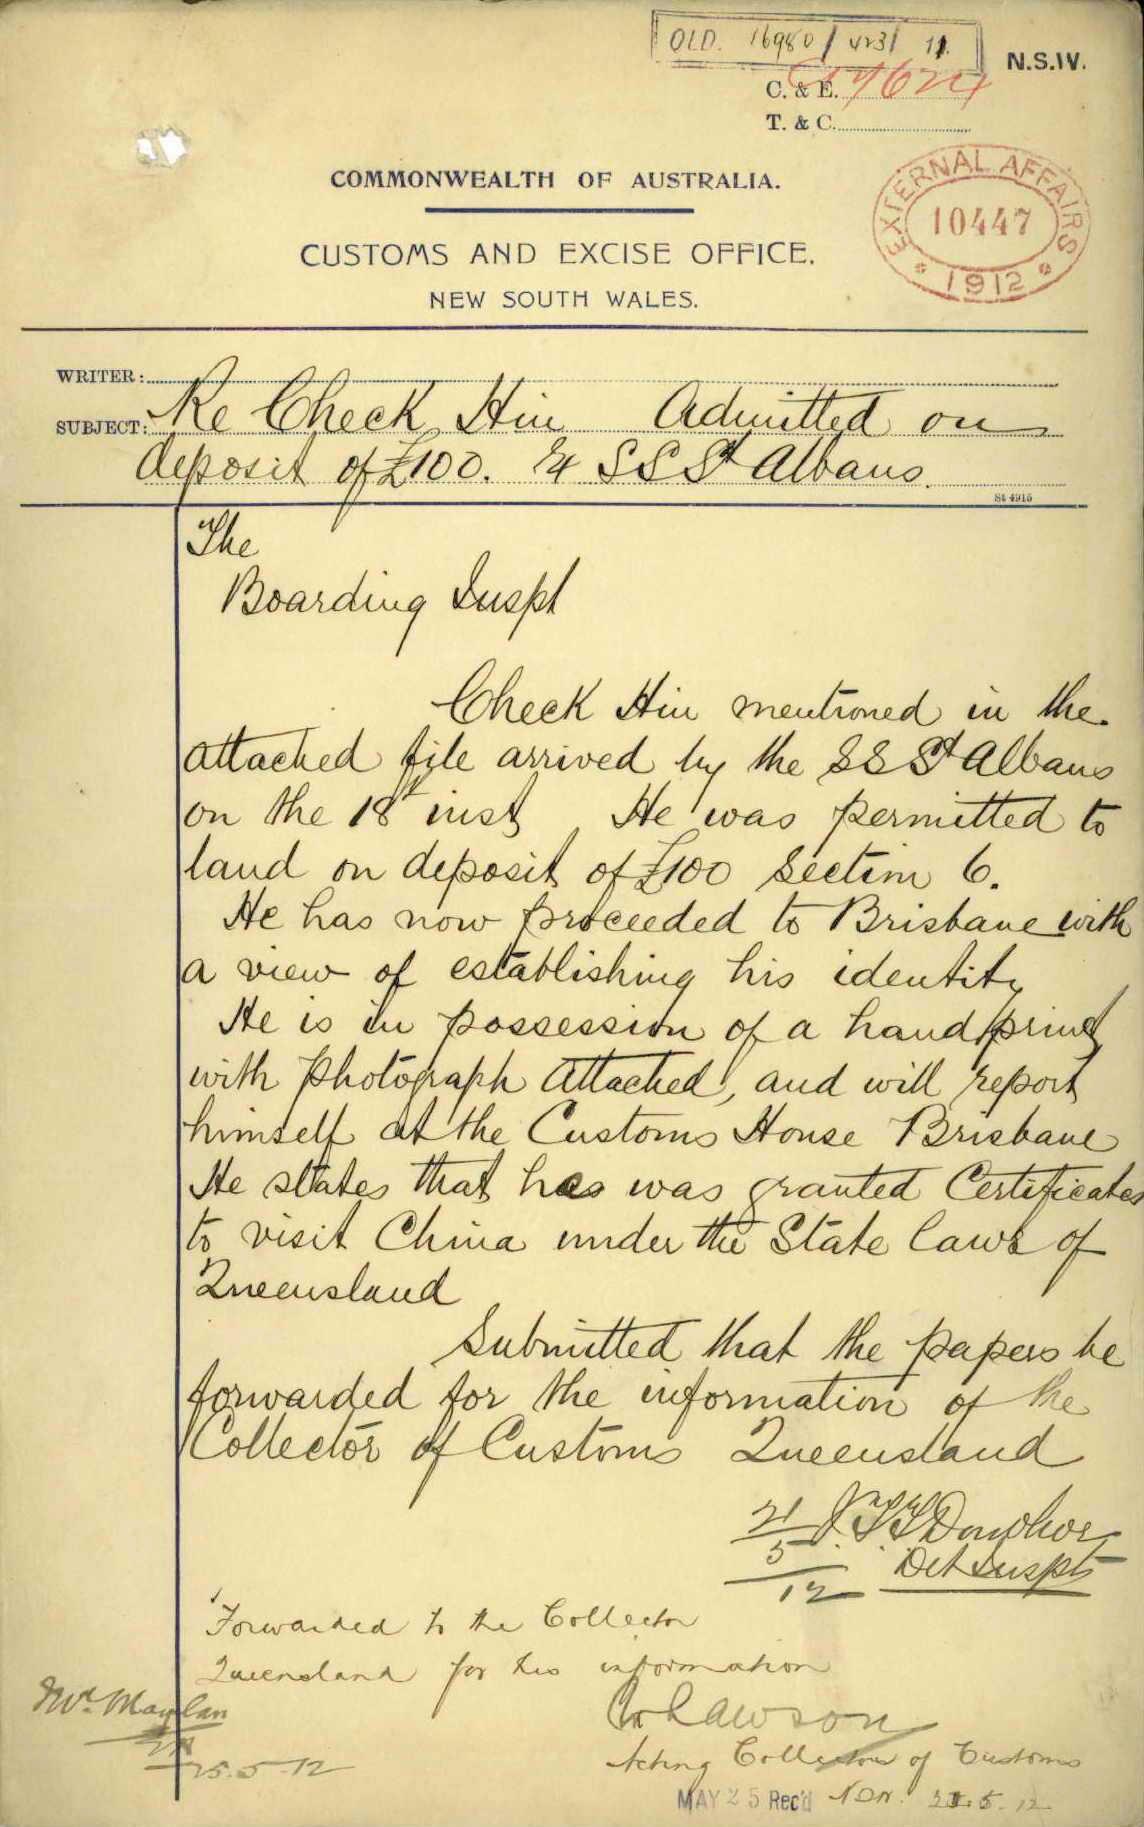 OLD. 16980/423/11.
N.S.W.
C. & E.
T. & C.
COMMONWEALTH OF AUSTRALIA.
EXTERNAL AFFAIRS
10447
1912
CUSTOMS AND EXCISE OFFICE.
NEW SOUTH WALES.
WRITER:
SUBJECT: Re Check Hin Admitted on
deposit of £100. SS St Albans.
St 4915
The
Boarding Inspt
Check Hin mentioned in the
attached file arrived by the SS St Albans
on the 18th inst He was permitted to
land on deposit of £100 Section 6.
He has now proceeded to Brisbane with
a view of establishing his identity
He is in possession of a hand print
with photograph attached, and will report
himself at the Customs House Brisbane
He states that he was granted Certificates
to visit China under the State laws of
Queensland
Submitted that the papers be
forwarded for the information of the
Collector of Customs Queensland
21/5/12 J.T.T. Donohoe
Det Inspt
Forwarded to the Collector
Queensland for his information
Lawson
Acting Collector of Customs
MAY 25 Rec'd
25.5.12